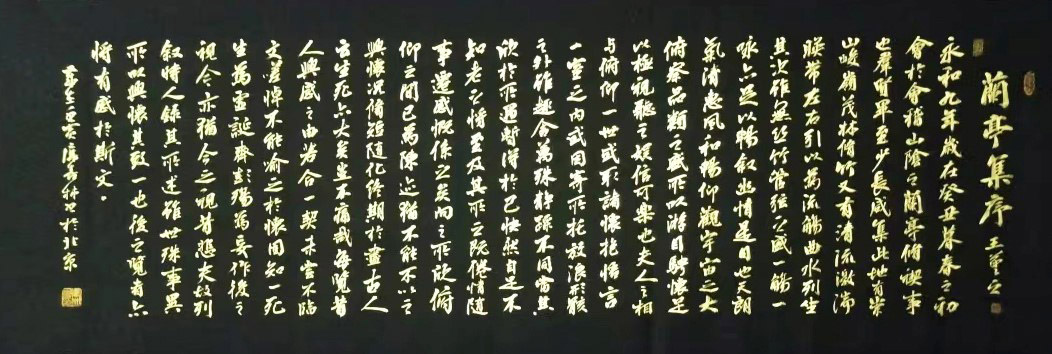 蘭亭集序 王羲之
永和九年歲在癸丑暮春之初
會於會稽山陰之蘭亭脩禊事
也群賢畢至少長咸集此地有崇
山峻嶺茂林脩竹又有清流激湍
暎帶左右引以為流觴曲水列坐
其次雖無絲竹管弦之盛一觴一
咏亦足以暢叙幽情是日也天朗
氣清惠風和暢仰觀宇宙之大
俯察品類之盛所以游目騁懷足
以極視聽之娛信可樂也夫人之相
与俯仰一世或取諸懷抱悟言
一室之内或因寄所托放浪形骸
之外雖趣舍萬殊靜躁不同當其
欣於所遇暫得於己快然自足不
知老之將至及其所之既倦情隨
事遷感慨係之矣向之所欣俯
仰之間已為陳迹猶不能不以之
興懷況脩短隨化終期於盡古人
云生死亦大矣豈不痛哉每覽昔
人興感之由若合一契未嘗不臨
文嗟悼不能喻之於懷固知一死
生為虛誕齊彭殤為妄作後之
視今亦猶今之視昔悲夫故列
叙時人録其所述雖世殊事異
所以興懷其致一也後之覽者亦
將有感於斯文。
於北京